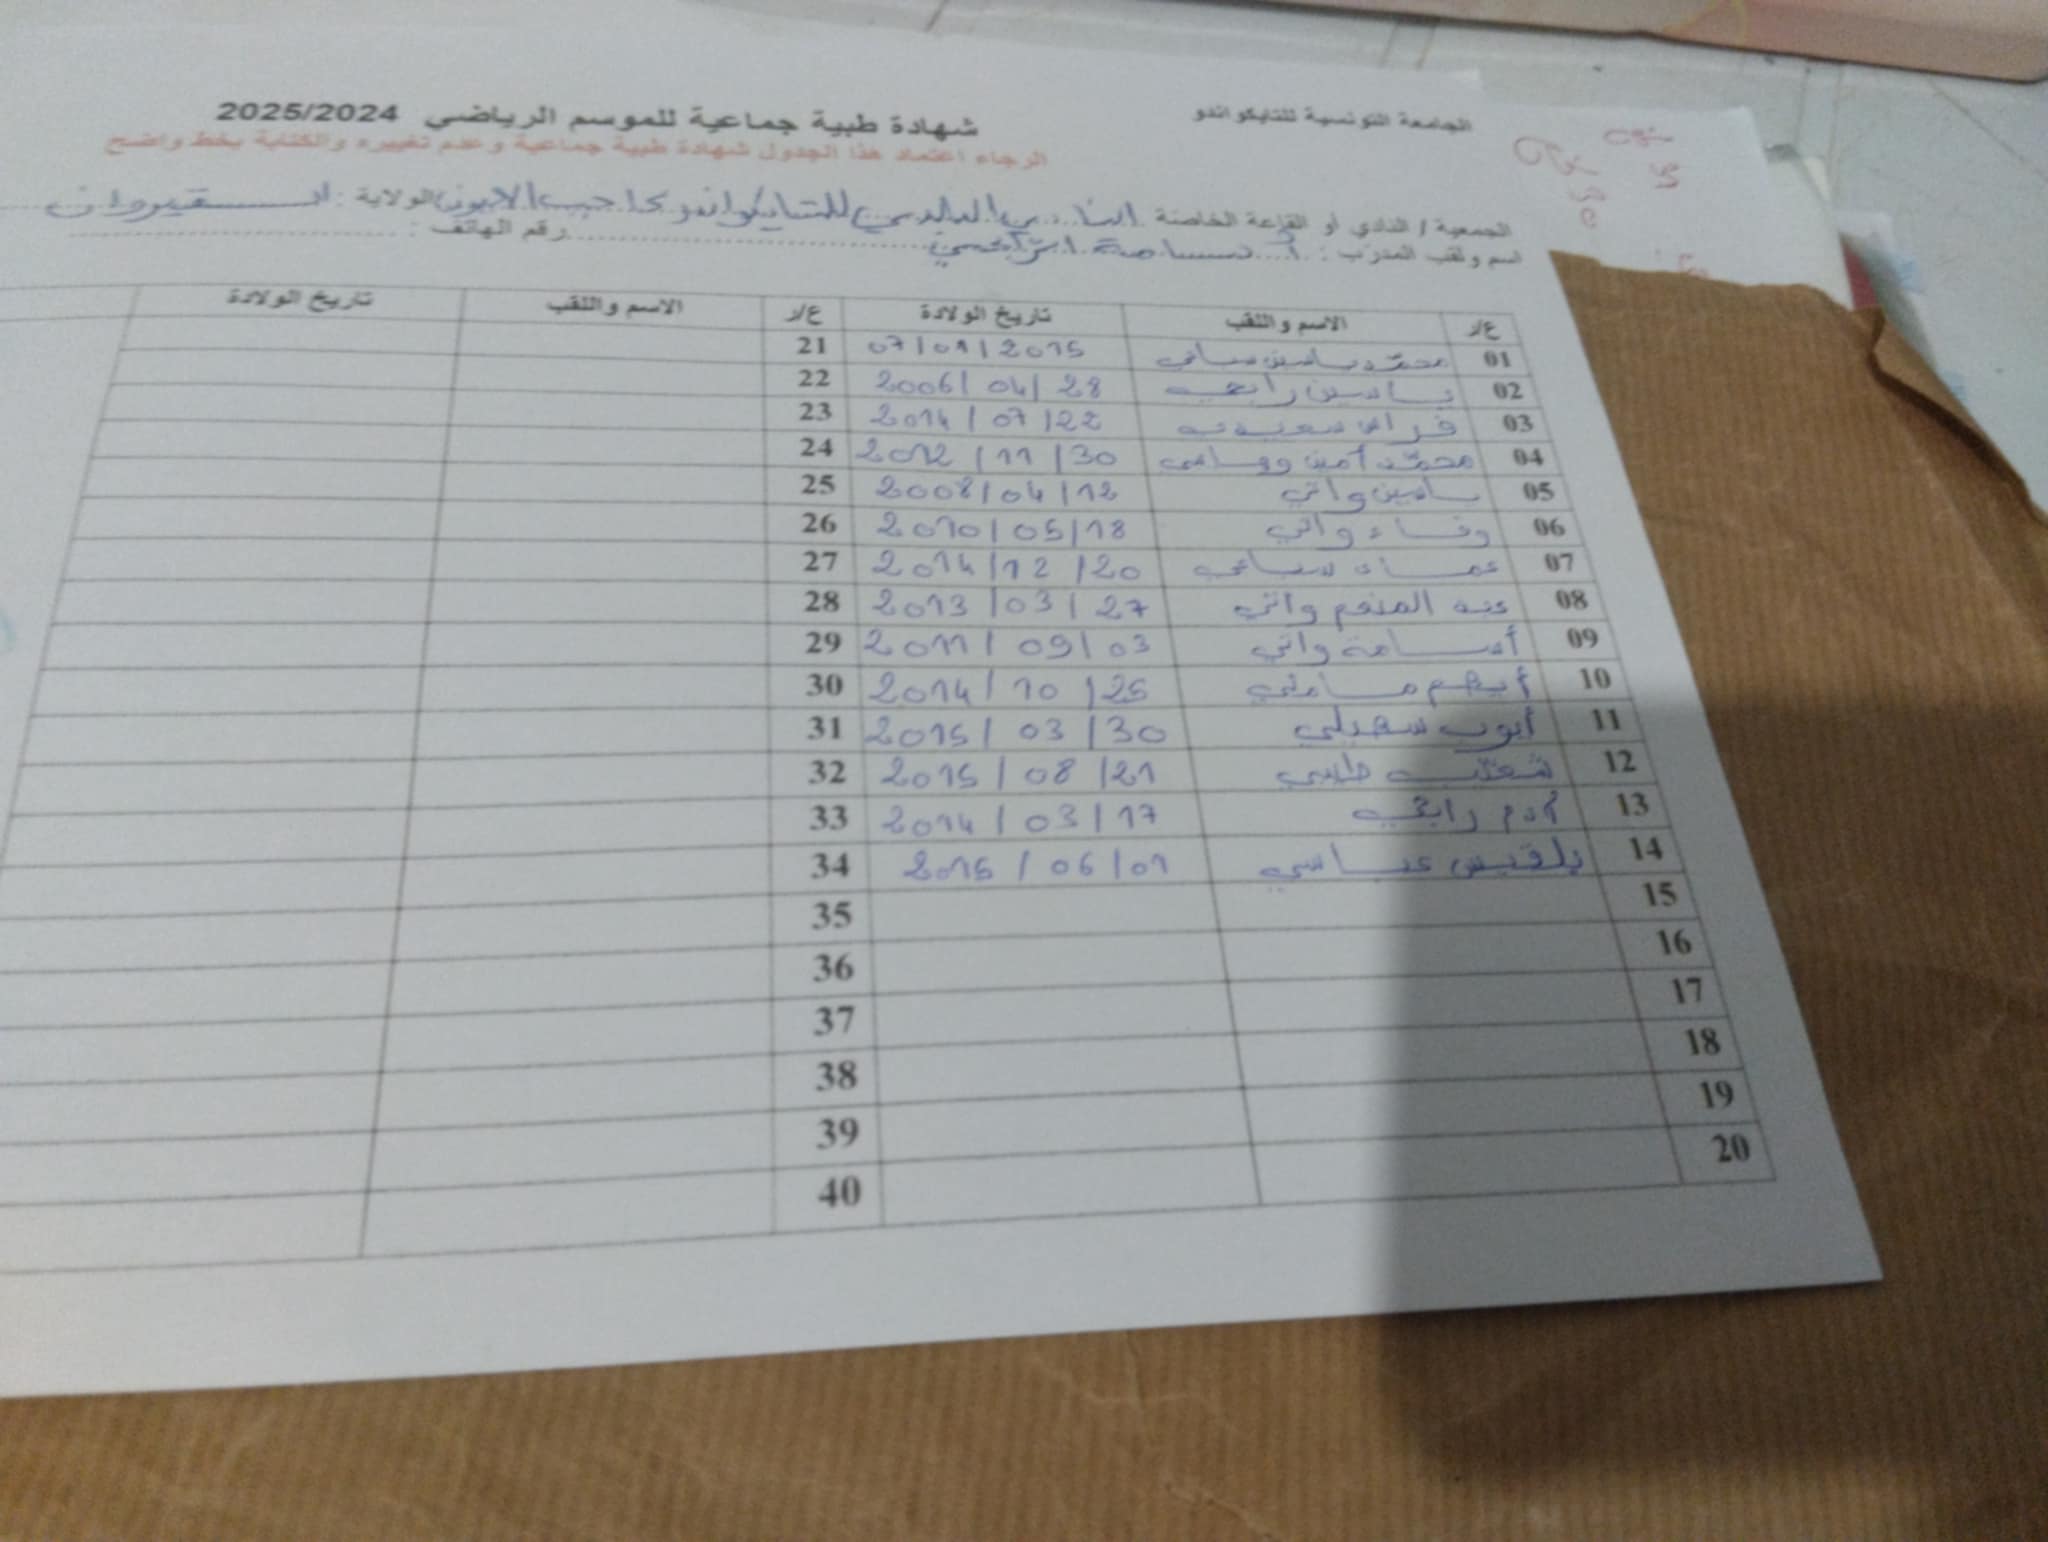 الجامعة التونسية للتايكواندو
شهادة طبية جماعية للموسم الرياضي 2025/2024
الرجاء اعتماد هذا الجدول شهادة طبية جماعية وعدم تغييره والكتابة بخط واضح
الجمعية / النادي أو القاعة الخاصة النادي البلدي للتايكواندو بحاجب العيون الولاية : القيروان
اسم ولقب المدرب : أسامة رقم الهاتف :
ع/ر الاسم واللقب تاريخ الولادة ع/ر الاسم واللقب تاريخ الولادة
01 محمد ياسين 07/01/2015 21
02 ياسين رابحي 2006/04/28 22
03 فراس 2014/07/22 23
04 محمد أمين 2012/11/30 24
05 ياسين واتي 2008/04/12 25
06 وفاء واتي 2010/05/18 26
07 عماد 2014/12/20 27
08 عبد المنعم واتي 2013/03/27 28
09 أسامة واتي 2011/09/03 29
10 أيهم 2014/10/25 30
11 أيوب سهيلي 2015/03/30 31
12 2015/08/21 32
13 آدم رابحي 2014/03/17 33
14 بلقيس عباسي 2015/06/01 34
15 35
16 36
17 37
18 38
19 39
20 40